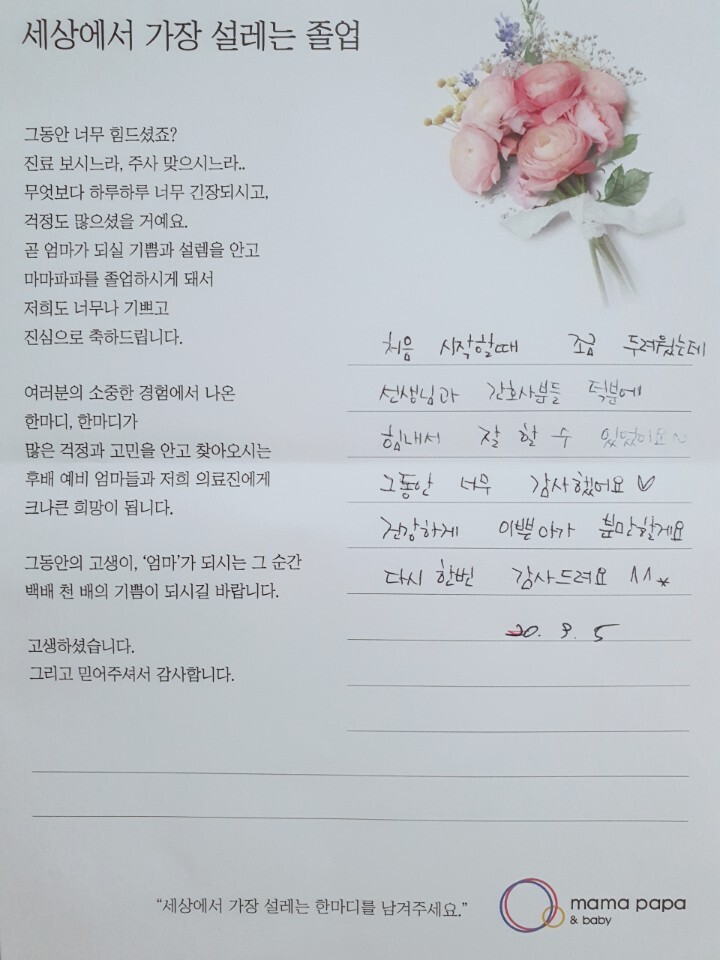 세상에서 가장 설레는 졸업
그동안 너무 힘드셨죠?
진료 보시느라, 주사 맞으시느라..
무엇보다 하루하루 너무 긴장되시고,
걱정도 많으셨을 거예요.
곧 엄마가 되실 기쁨과 설렘을 안고
마마파파를 졸업하시게 돼서
저희도 너무나 기쁘고
진심으로 축하드립니다.
여러분의 소중한 경험에서 나온
한마디, 한마디가
많은 걱정과 고민을 안고 찾아오시는
후배 예비 엄마들과 저희 의료진에게
크나큰 희망이 됩니다.
그동안의 고생이, ‘엄마’가 되시는 그 순간
백배 천 배의 기쁨이 되시길 바랍니다.
고생하셨습니다.
그리고 믿어주셔서 감사합니다.
처음 시작할때 조금 두려웠는데
선생님과 간호사분들 덕분에
힘내서 잘 할 수 있었어요~
그동안 너무 감사했어요 ♡
건강하게 이쁜아가 분만할게요
다시 한번 감사드려요 ^^*
20. 9. 5
“세상에서 가장 설레는 한마디를 남겨주세요.”
mama papa
& baby